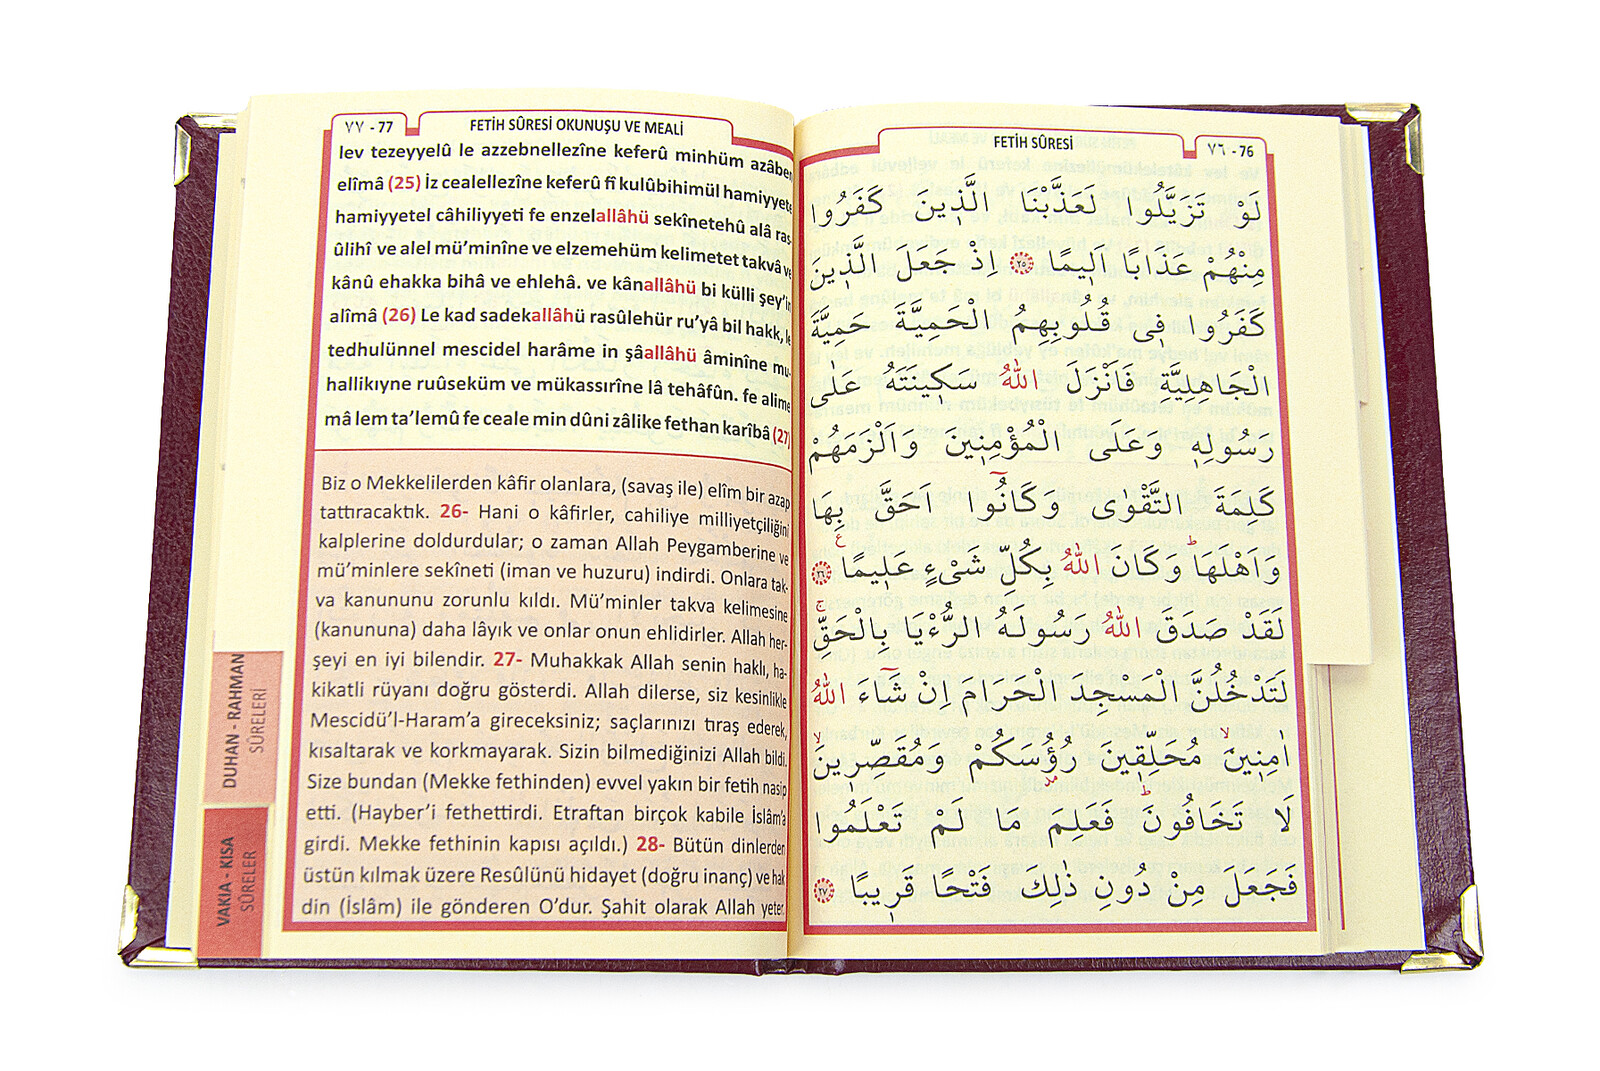 FETİH SÛRESİ
٧٦ - 76
لَوْ تَزَيَّلُوا لَعَذَّبْنَا الَّذ۪ينَ كَفَرُوا
مِنْهُمْ عَذَابًا اَل۪يمًا ﴿٢٥﴾ اِذْ جَعَلَ الَّذ۪ينَ
كَفَرُوا ف۪ى قُلُوبِهِمُ الْحَمِيَّةَ حَمِيَّةَ
الْجَاهِلِيَّةِ فَاَنْزَلَ اللّٰهُ سَك۪ينَتَهُ عَلٰى
رَسُولِه۪ وَعَلَى الْمُؤْمِن۪ينَ وَاَلْزَمَهُمْ
كَلِمَةَ التَّقْوٰى وَكَانُٓوا اَحَقَّ بِهَا
وَاَهْلَهَاۜ وَكَانَ اللّٰهُ بِكُلِّ شَىْءٍ عَل۪يمًا ﴿٢٦﴾
لَقَدْ صَدَقَ اللّٰهُ رَسُولَهُ الرُّءْيَا بِالْحَقِّۚ
لَتَدْخُلُنَّ الْمَسْجِدَ الْحَرَامَ اِنْ شَٓاءَ اللّٰهُ
اٰمِن۪ينَۙ مُحَلِّق۪ينَ رُؤُ۫سَكُمْ وَمُقَصِّر۪ينَۙ
لَا تَخَافُونَۜ فَعَلِمَ مَا لَمْ تَعْلَمُوا
فَجَعَلَ مِنْ دُونِ ذٰلِكَ فَتْحًا قَر۪يبًا ﴿٢٧﴾
٧٧ - 77
FETİH SÛRESİ OKUNUŞU VE MEALİ
lev tezeyyelû le azzebnellezîne keferû minhüm azâben
elîmâ (25) İz cealellezîne keferû fî kulûbihimül hamiyyete
hamiyyetel câhiliyyeti fe enzelallâhü sekînetehû alâ ras-
ûlihî ve alel mü’minîne ve elzemehüm kelimetet takvâ ve
kânû ehakka bihâ ve ehlehâ. ve kânallâhü bi külli şey’in
alîmâ (26) Le kad sadekallâhü rasûlehür ru’yâ bil hakk, le
tedhulünnel mescidel harâme in şâallâhü âminîne mu-
hallikıyne ruûseküm ve mükassırîne lâ tehâfûn. fe alime
mâ lem ta’lemû fe ceale min dûni zâlike fethan karîbâ (27)
Biz o Mekkelilerden kâfir olanlara, (savaş ile) elîm bir azap
tattıracaktık. 26- Hani o kâfirler, cahiliye milliyetçiliğini
kalplerine doldurdular; o zaman Allah Peygamberine ve
mü’minlere sekîneti (iman ve huzuru) indirdi. Onlara tak-
va kanununu zorunlu kıldı. Mü’minler takva kelimesine
(kanununa) daha lâyık ve onlar onun ehlidirler. Allah her-
şeyi en iyi bilendir. 27- Muhakkak Allah senin haklı, ha-
kikatli rüyanı doğru gösterdi. Allah dilerse, siz kesinlikle
Mescidü’l-Haram’a gireceksiniz; saçlarınızı tıraş ederek,
kısaltarak ve korkmayarak. Sizin bilmediğinizi Allah bildi.
Size bundan (Mekke fethinden) evvel yakın bir fetih nasip
etti. (Hayber’i fethettirdi. Etraftan birçok kabile İslâm’a
girdi. Mekke fethinin kapısı açıldı.) 28- Bütün dinlerden
üstün kılmak üzere Resûlünü hidayet (doğru inanç) ve hak
din (İslâm) ile gönderen O’dur. Şahit olarak Allah yeter.
DUHAN - RAHMAN
SÛRELERİ
VAKIA - KISA
SÛRELER